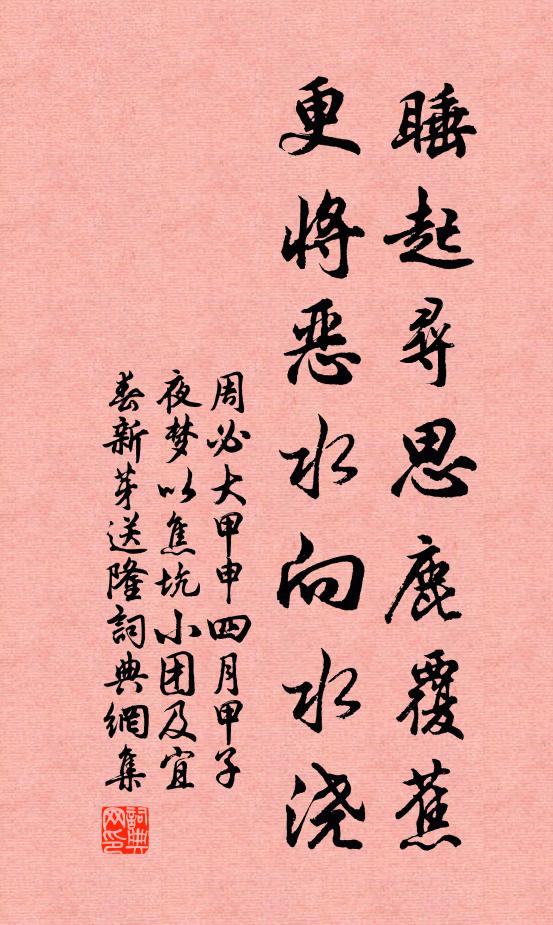 睡起尋思鹿覆蕉
更將惡水向水浇
周必大甲申四月甲子
夜梦以焦坑小团及宜
春新芽送隆詞典網集
詞典
网印